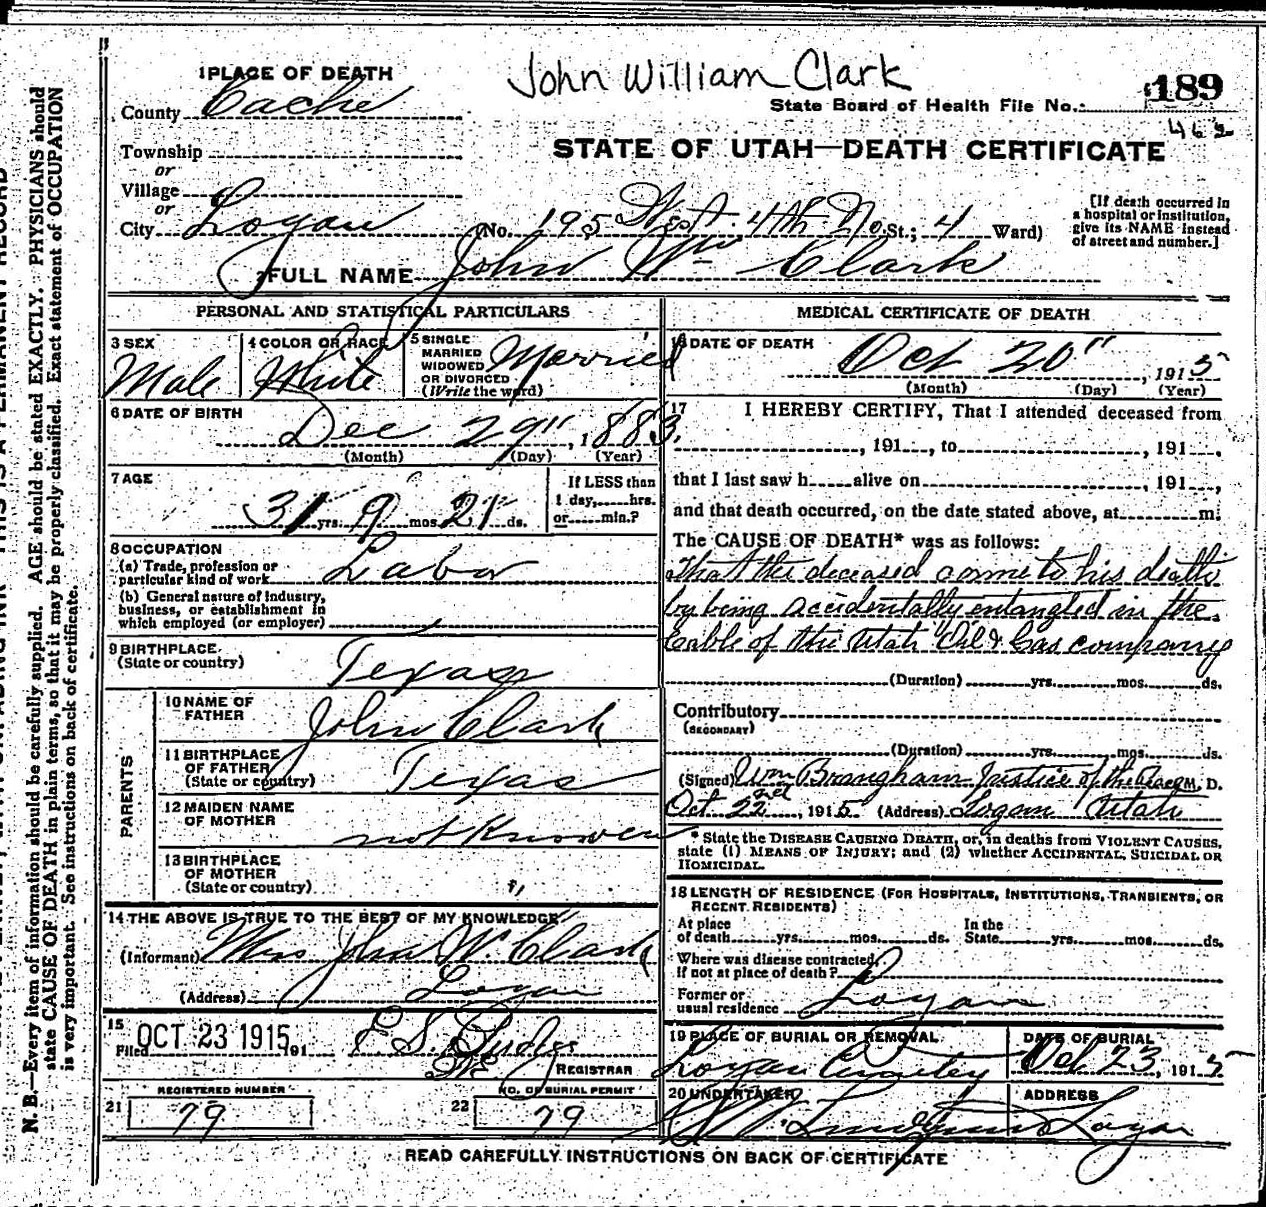 John William Clark
1 PLACE OF DEATH
County Cache
State Board of Health File No. 189
462
Township
or
STATE OF UTAH—DEATH CERTIFICATE
Village
or
City Logan (No. 195 West 4th No. St.; 4 Ward)
[If death occurred in
a hospital or institution,
give its NAME instead
of street and number.]
2 FULL NAME John Wm Clark
PERSONAL AND STATISTICAL PARTICULARS
3 SEX
Male
4 COLOR OR RACE
White
5 SINGLE
MARRIED
WIDOWED
OR DIVORCED
(Write the word)
Married
6 DATE OF BIRTH
Dec 29", 1883.
(Month) (Day) (Year)
7 AGE
31 yrs. 9 mos. 21 ds.
If LESS than
1 day,......hrs.
or......min.?
8 OCCUPATION
(a) Trade, profession or
particular kind of work Labor
(b) General nature of industry,
business, or establishment in
which employed (or employer)
9 BIRTHPLACE
(State or country) Texas
PARENTS
10 NAME OF
FATHER John Clark
11 BIRTHPLACE
OF FATHER
(State or country) Texas
12 MAIDEN NAME
OF MOTHER not Knowen
13 BIRTHPLACE
OF MOTHER
(State or country) "
14 THE ABOVE IS TRUE TO THE BEST OF MY KNOWLEDGE
(Informant) Mrs John W. Clark
(Address) Logan
15
Filed OCT. 23 1915, 191
REGISTRAR
REGISTERED NUMBER
21 79
NO. OF BURIAL PERMIT
22 79
MEDICAL CERTIFICATE OF DEATH
16 DATE OF DEATH
Oct 20", 1915
(Month) (Day) (Year)
17 I HEREBY CERTIFY, That I attended deceased from
, 191...., to , 191....,
that I last saw h......alive on , 191....,
and that death occurred, on the date stated above, at m.
The CAUSE OF DEATH* was as follows:
That the deceased come to his death
by being accidentally entangled in the
Cable of the Utah Oil & Gas company
(Duration) yrs. mos. ds.
Contributory
(SECONDARY)
(Duration) yrs. mos. ds.
(Signed) Wm Brangham Justice of the Peace M. D.
Oct 22nd, 1915 (Address) Logan Utah
* State the DISEASE CAUSING DEATH, or, in deaths from VIOLENT CAUSES,
state (1) MEANS OF INJURY; and (2) whether ACCIDENTAL, SUICIDAL OR
HOMICIDAL.
18 LENGTH OF RESIDENCE (FOR HOSPITALS, INSTITUTIONS, TRANSIENTS, OR
RECENT RESIDENTS)
At place
of death yrs. mos. ds.
In the
State yrs. mos. ds.
Where was disease contracted,
if not at place of death?
Former or
usual residence Logan
19 PLACE OF BURIAL OR REMOVAL
Logan
DATE OF BURIAL
Oct 23, 1915
20 UNDERTAKER
ADDRESS
Logan
READ CAREFULLY INSTRUCTIONS ON BACK OF CERTIFICATE
N. B.—Every item of information should be carefully supplied. AGE should be stated EXACTLY. PHYSICIANS should
state CAUSE OF DEATH in plain terms, so that it may be properly classified. Exact statement of OCCUPATION
is very important. See instructions on back of certificate.